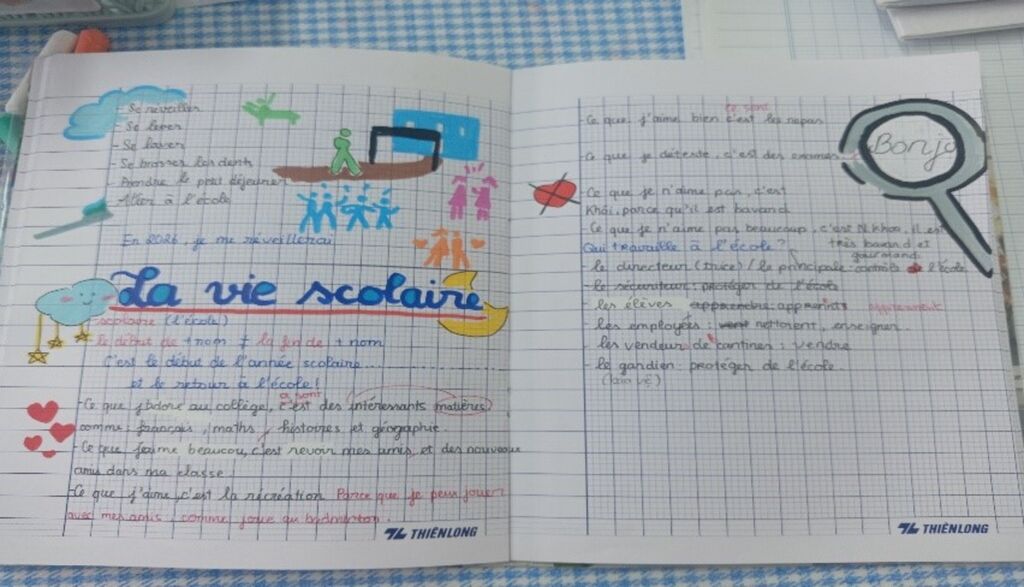 - Se réveiller
- Se lever
- Se laver
- Se brosser les dents
- Prendre le petit déjeuner
- Aller à l'école
En 2026, je me réveillerai
La vie scolaire
scolaire (l'école)
le début de + nom ≠ la fin de + nom
C'est le début de l'année scolaire...
et le retour à l'école!
ce sont
- Ce que j'adore au collège, c'est des intéressants matières
comme: français, maths, histoires et géographie.
- Ce que j'aime beaucou, c'est revoir mes amis et des nouveaux
amis dans ma classe
- Ce que j'aime, c'est la récréation Parce que je peux jouer
avec mes amis, comme joue au badminton.
THIÊNLONG
ce sont
- Ce que j'aime bien c'est les repas
Bonjo
- Ce que je déteste, c'est des examens
- Ce que je n'aime pas, c'est
Khải, parce qu'il est bavard
Ce que je n'aime pas beaucoup, c'est N Khoa, il est
très bavard et
gourmand.
Qui travaille à l'école?
- le directeur (trice) / le principale: contrôle de l'école
- le sécuriteur: protéger de l'école
- les élèves apprendre: apprents apprennent
- les employées: vent nettoient, enseigner.
- les vendeur de cantines: vendre
- le gardien: protéger de l'école.
(bảo vệ)
THIÊNLONG